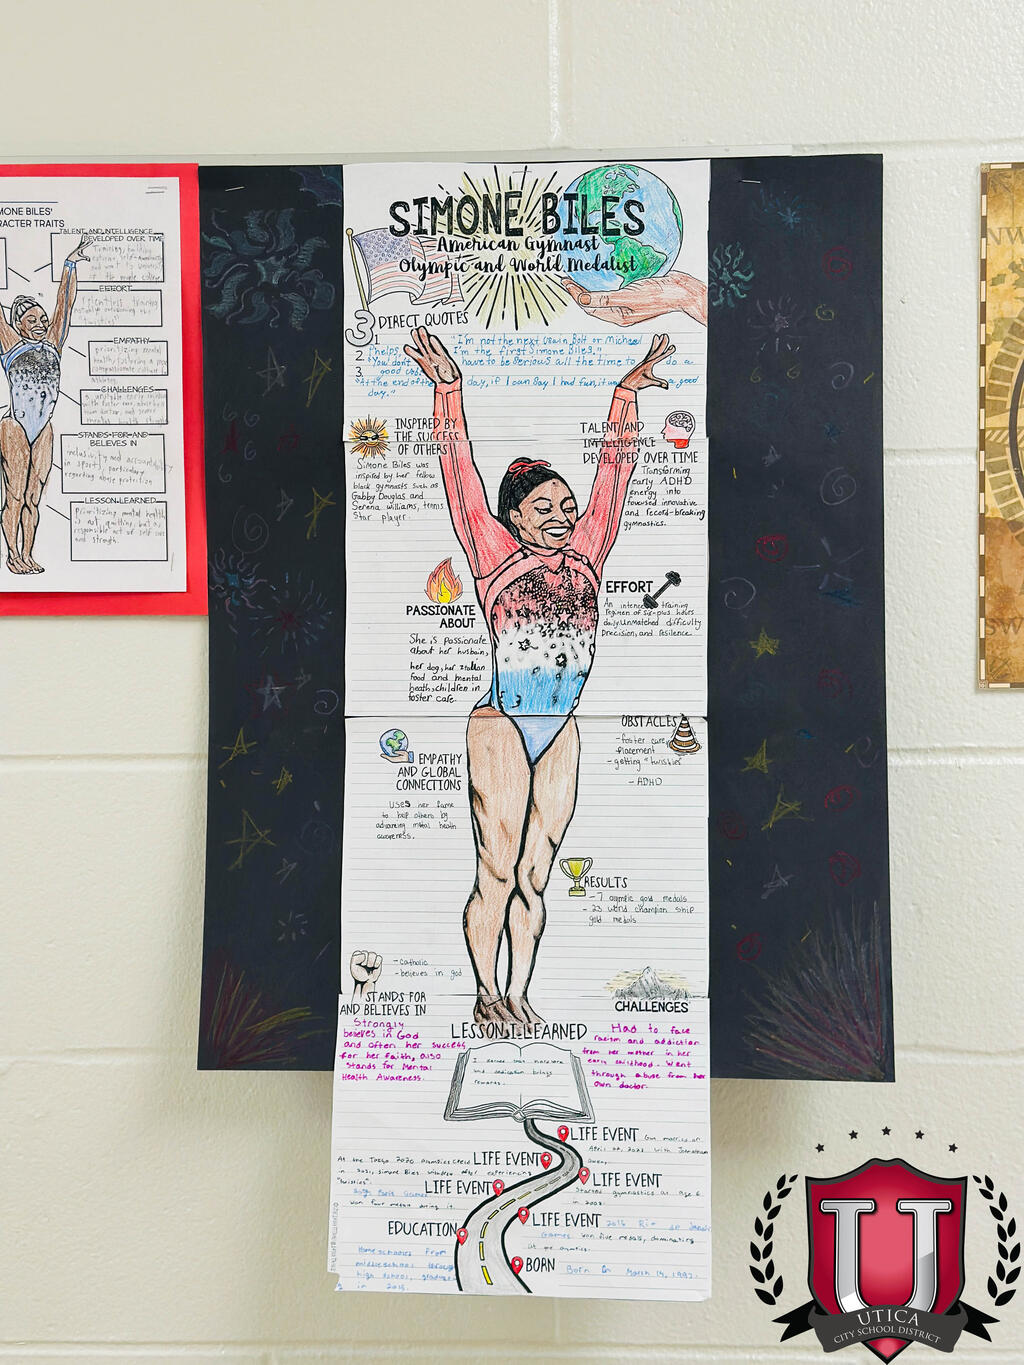 SIMONE BILES
American Gymnast
Olympic and World Medalist
3 DIRECT QUOTES
1. "I'm not the next Usain Bolt or Michael
Phelps, I'm the first Simone Biles."
2. "You don't have to be serious all the time to do a
good
3. "At the end of the day, if I can say I had fun, it was a good
day."
INSPIRED BY
THE SUCCESS
OF OTHERS
Simone Biles was
inspired by her fellow
black gymnasts such as
Gabby Douglas and
Serena williams, tennis
Star player.
TALENT AND
INTELLIGENCE
DEVELOPED OVER TIME
Transforming
early ADHD
energy into
focused innovative
and record-breaking
gymnastics.
PASSIONATE
ABOUT
She is passionate
about her husbain,
her dog, her Italian
food and mental
heath, children in
foster cafe.
EFFORT
An intence training
regimen of six-plus hours
daily. Unmatched difficulty
Precision, and resilence
EMPATHY
AND GLOBAL
CONNECTIONS
uses her fame
to help others by
advancing mental heath
awareness.
OBSTACLES
-foster care
placement
-getting "twisties"
-ADHD
RESULTS
- 7 olympic gold medals
- 23 world champion ship
gold medals
- Catholic
- believes in god
STANDS FOR
AND BELIEVES IN
Strongly
believes in God
and often her success
for her faith, also
Stands for Mental
Health Awareness.
CHALLENGES
Had to face
racism and addiction
from her mother in her
early childhood. Went
through abuse from her
own doctor.
LESSON I LEARNED
I learned that hardwork
and dedication brings
rewards.
LIFE EVENT Got married on
April 22, 2023 with Jonathan
Owens
LIFE EVENT
At the Tokyo 2020 olympics
in 2021, Simone Biles withdrew after experiencing
"twisties"
LIFE EVENT
Started gymnastics at age 6
in 2003
LIFE EVENT
won four medals during it
LIFE EVENT 2016 Rio de Janeiro
Games won five medals, dominating
EDUCATION
Homeschooled from
middle school through
high school, graduated
in 2015.
BORN Born on March 14, 1997.
SIMONE BILES'
CHARACTER TRAITS
TALENT AND INTELLIGENCE
DEVELOPED OVER TIME
EFFORT
relentless training
"twisties"
EMPATHY
prioritizing mental
CHALLENGES
STANDS FOR AND
BELIEVES IN
inclusivity and accountability
in sports, particulary
regarding abuse protection
LESSON LEARNED
Prioritizing mental health
is not quitting, but a
responsible act of self care
and strength.
NW
SW
U
UTICA
CITY SCHOOL DISTRICT